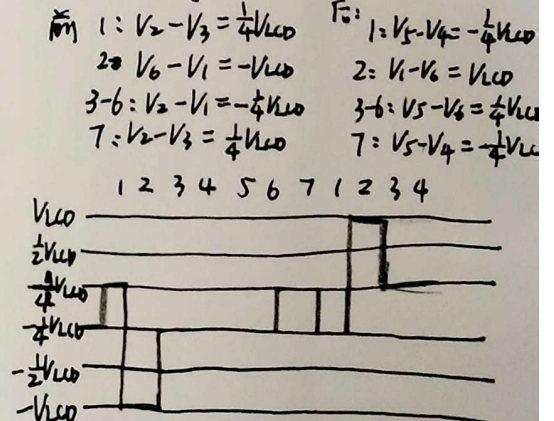 前 1: V2-V3=1/4VLCD
2: V6-V1=-VLCD
3-6: V2-V1=-1/4VLCD
7: V2-V3=1/4VLCD
后: 1: V5-V4=-1/4VLCD
2: V1-V6=VLCD
3-6: V5-V6=1/4VLCD
7: V5-V4=-1/4VLC
1 2 3 4 5 6 7 1 2 3 4
VLCD
1/2VLCD
1/4VLCD
-1/4VLCD
-1/2VLCD
-VLCD